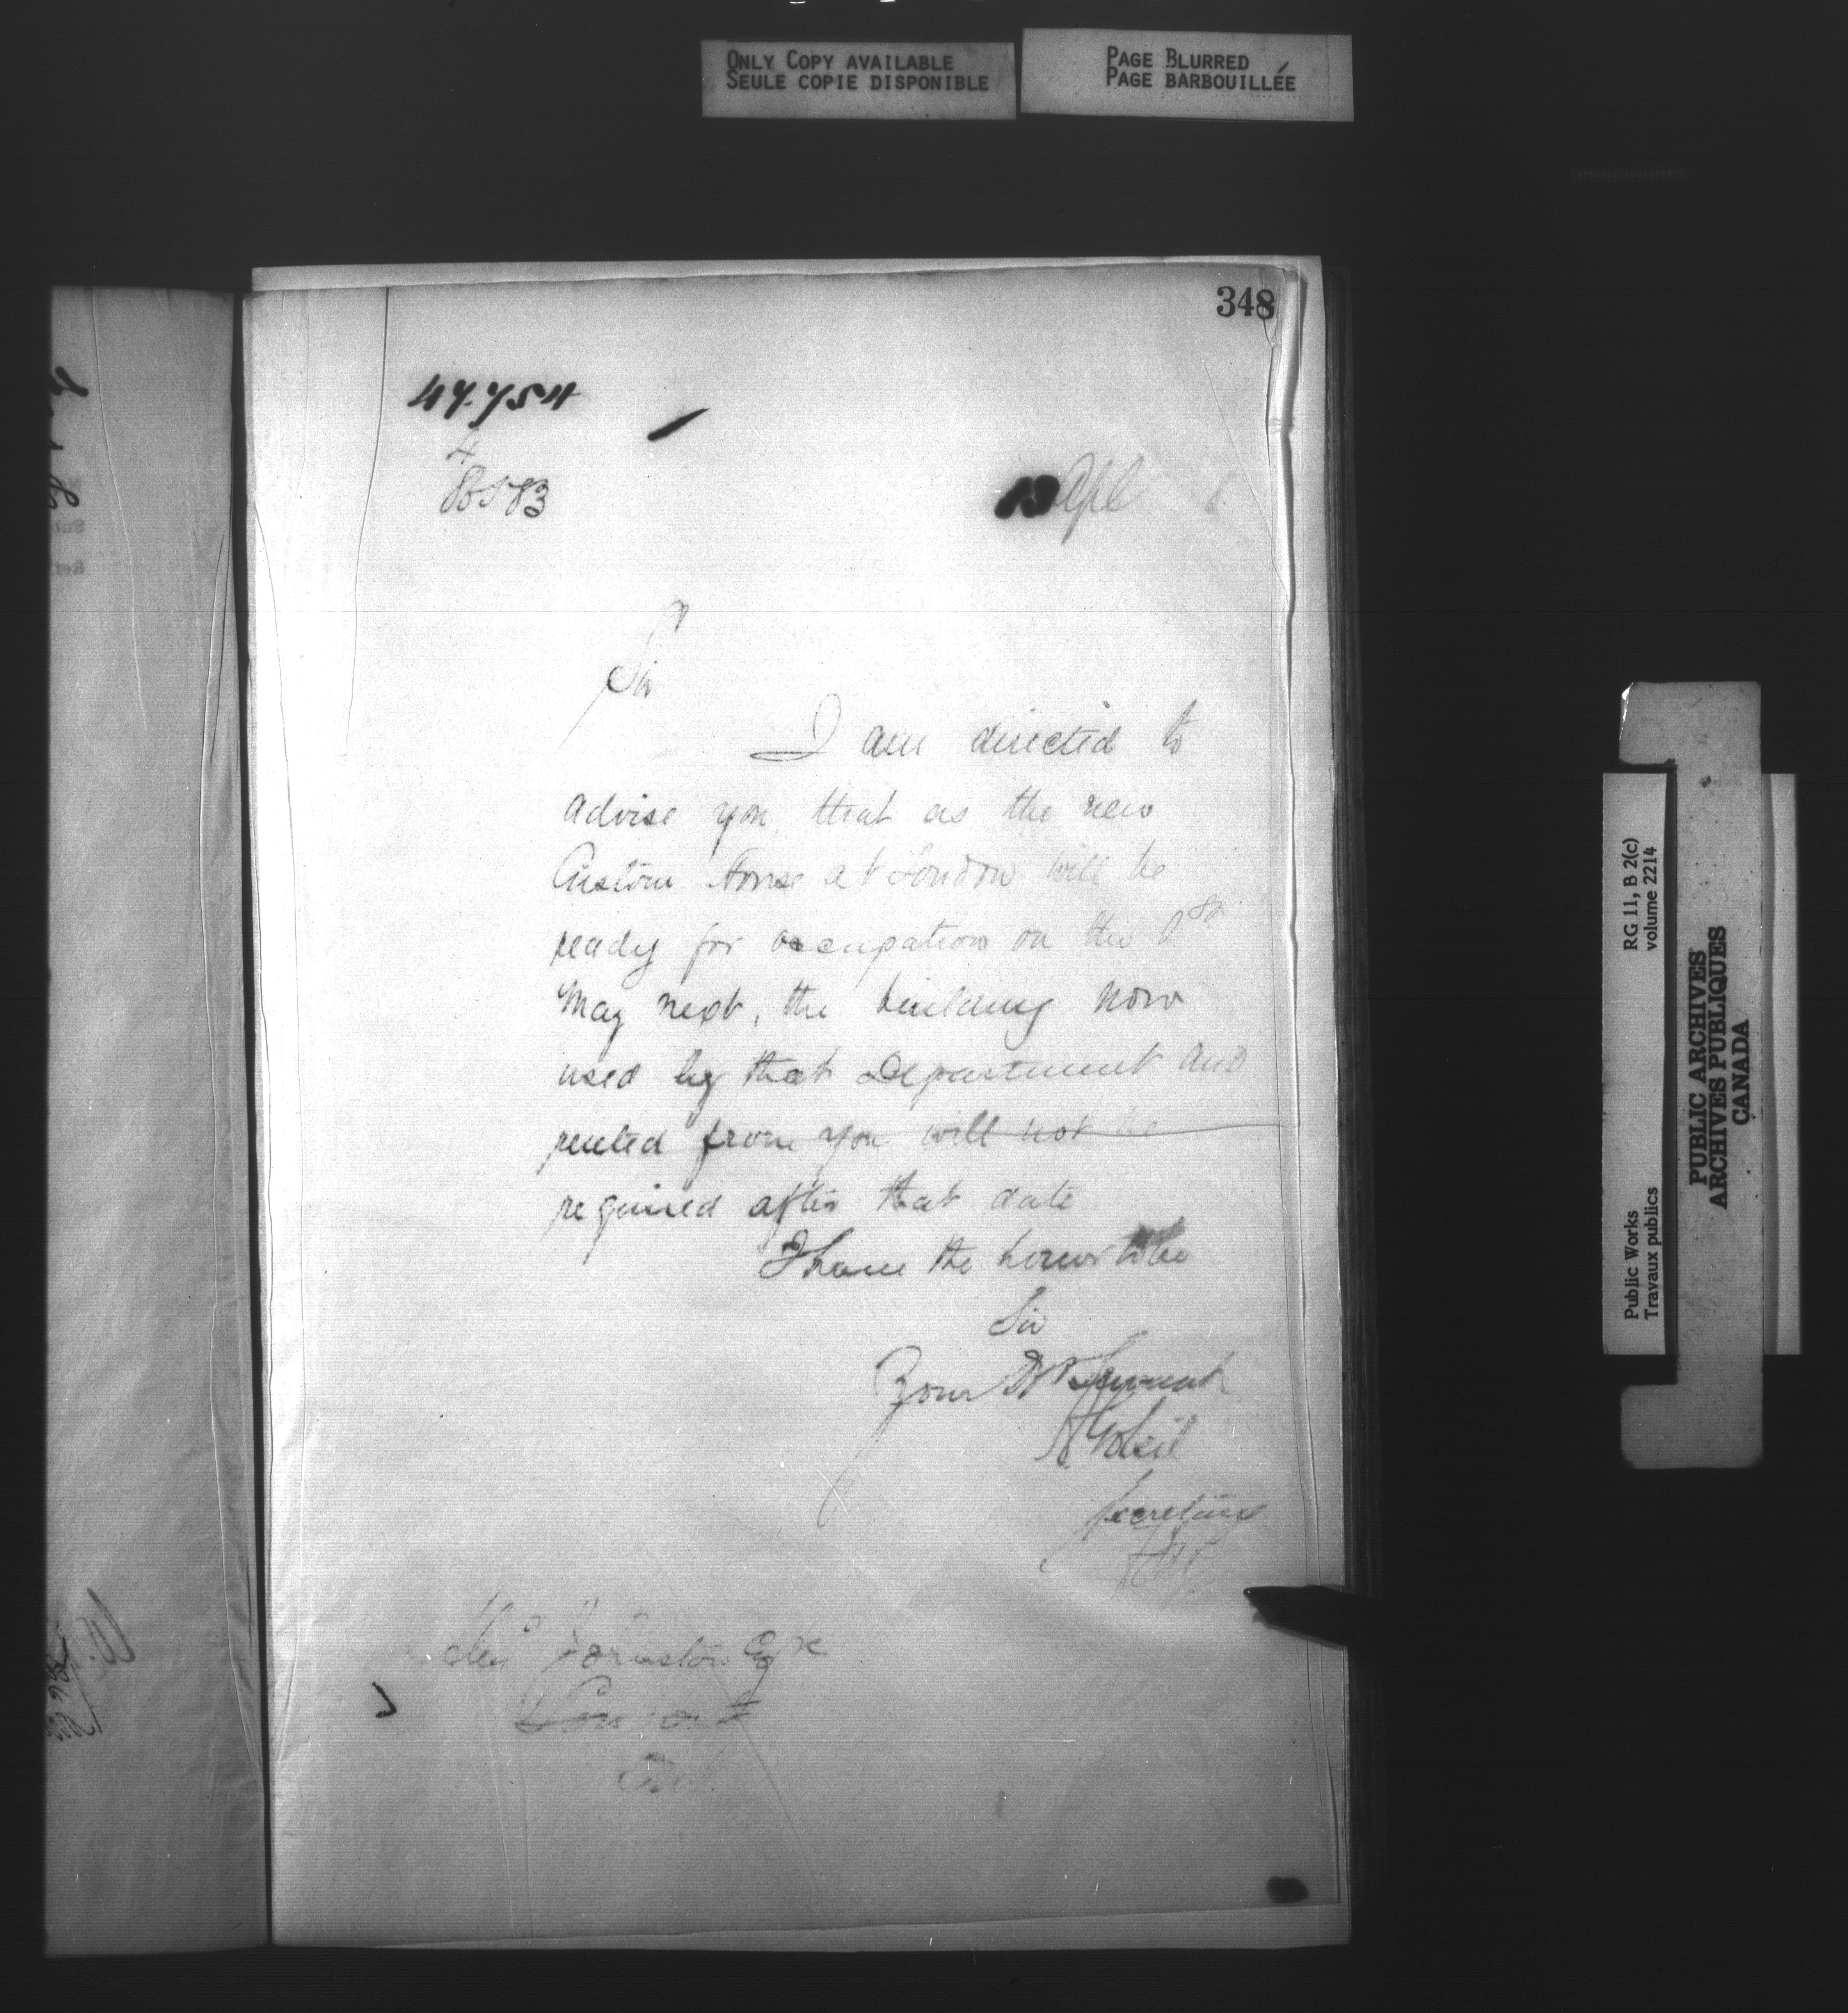 ONLY COPY AVAILABLE
SEULE COPIE DISPONIBLE
PAGE BLURRED
PAGE BARBOUILLÉE
348
47.754
4
8583
13 Apl 8
Sir
I am directed to
advise you, that as the new
Custom House at London will be
ready for occupation on the 1st
May next, the building now
used by that Department and
rented from you will not be
required after that date
I have the honor to be
Sir
Your Obt Servant
Secretary
Johnston Esqre
London
Ont
RG 11, B 2(c)
volume 2214
Public Works
Travaux publics
PUBLIC ARCHIVES
ARCHIVES PUBLIQUES
CANADA